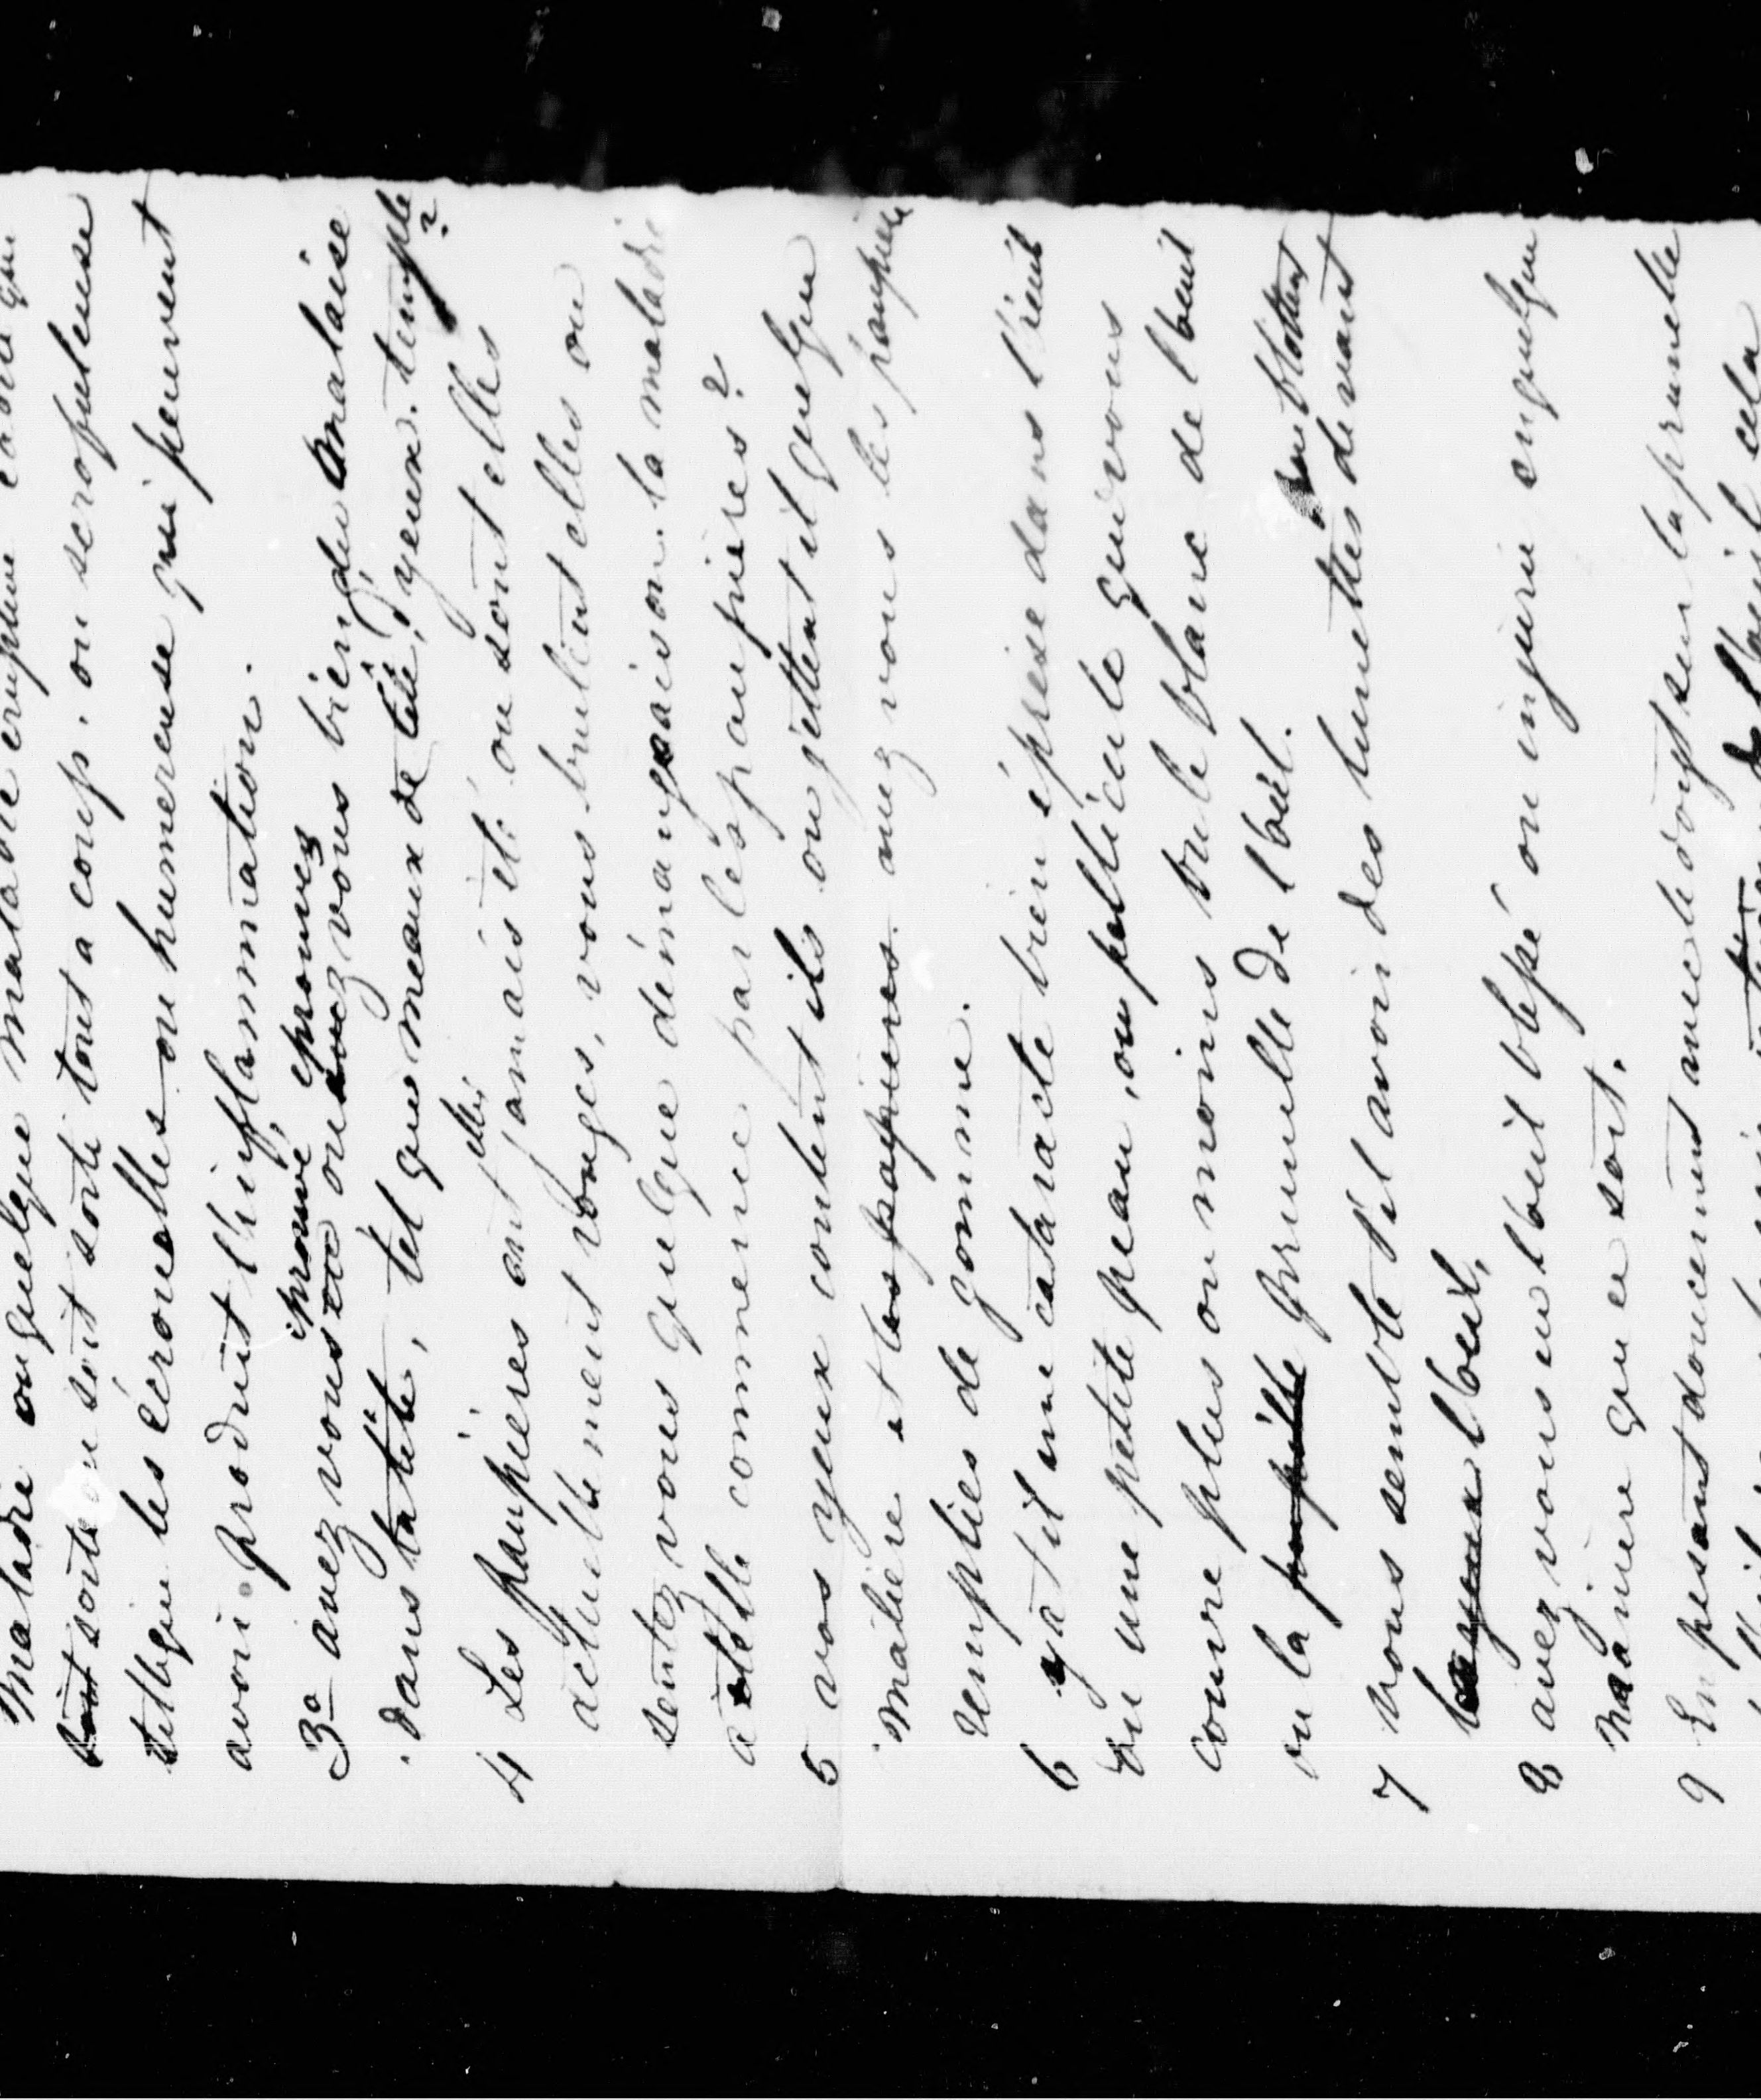 Maladie ou quelque maladie eruptive
soit sorte ou soit sorti tout a coup, ou scrofuleuse
telle que les écrouelles ou humereuse qui peuvent
avoir produit l'inflammation.
éprouvé, éprouvez
3o avez vous ou avez vous bien du malaise
dans la tête, tel que meaux de tête, yeux. temple?
elles
4 Les paupières ont jamais été ou sont elles
actuellement rouges, vous brulent elles ou
sentez vous quelque démangeaison. la maladie
a telle commencé par les paupières?
5 vos yeux coulent ils ou jettent il quelque
matière et les papieres avez vous les paupiere
remplies de gomme.
6 y at il une cataracte bien éprise dans l'œuil
ou une petite peau, ou pellicule qui vous
couvre plus ou moins ou le blanc de l'œuil
ou la pupille prunelle de l'œuil.
7 vous semble t'il avoir des lunettes devant
les yeux l'œuil,
8 avez vous eu l'œuil blessé ou injurié en quelque
manière que ce soit.
9 En pesant doucement avec le doigt sur la prunelle
de l'œuil cela